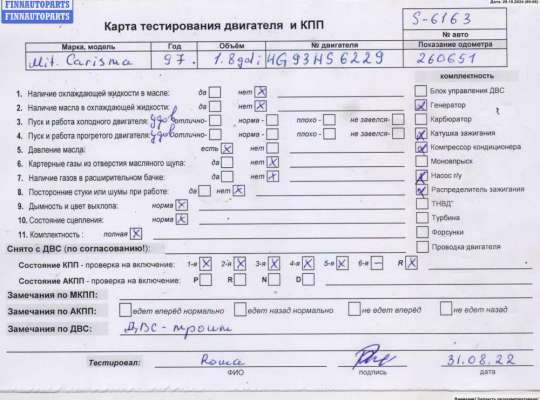 FINNAUTOPARTS
FINNAUTOPARTS
Карта тестирования двигателя и КПП
S-6163
№ авто
Марка, модель Год Объём № двигателя Показание одометра
Mit. Carisma 97. 1.8gdi 4G93HS6229 260651
комплектность
1. Наличие охлаждающей жидкости в масле: да нет X
2. Наличие масла в охлаждающей жидкости: да нет X
3. Пуск и работа холодного двигателя: удов отлично- норма - плохо - не завелся-
4. Пуск и работа прогретого двигателя: удов отлично- норма - плохо - не завелся-
5. Давление масла: есть X нет
6. Картерные газы из отверстия масляного щупа: да нет X
7. Наличие газов в расширительном бачке: да нет X
8. Посторонние стуки или шумы при работе: да нет X
9. Дымность и цвет выхлопа: норма X
10. Состояние сцепления: норма X
11. Комплектность : полная X
Блок управления ДВС
Генератор
Карбюратор
Катушка зажигания
Компрессор кондиционера
Моновпрыск
Насос г/у
Распределитель зажигания
ТНВД
Турбина
Форсунки
Проводка двигателя
Снято с ДВС (по согласованию!):
Состояние КПП - проверка на включение: 1-я X 2-я X 3-я X 4-я X 5-я X 6-я — R X
Состояние АКПП - проверка на включение: P R N D
Замечания по МКПП:
Замечания по АКПП: едет вперёд нормально едет назад нормально не едет вперёд не едет назад
Замечания по ДВС: ДВС - троит
Тестировал: Roma 31.08.22
ФИО подпись дата